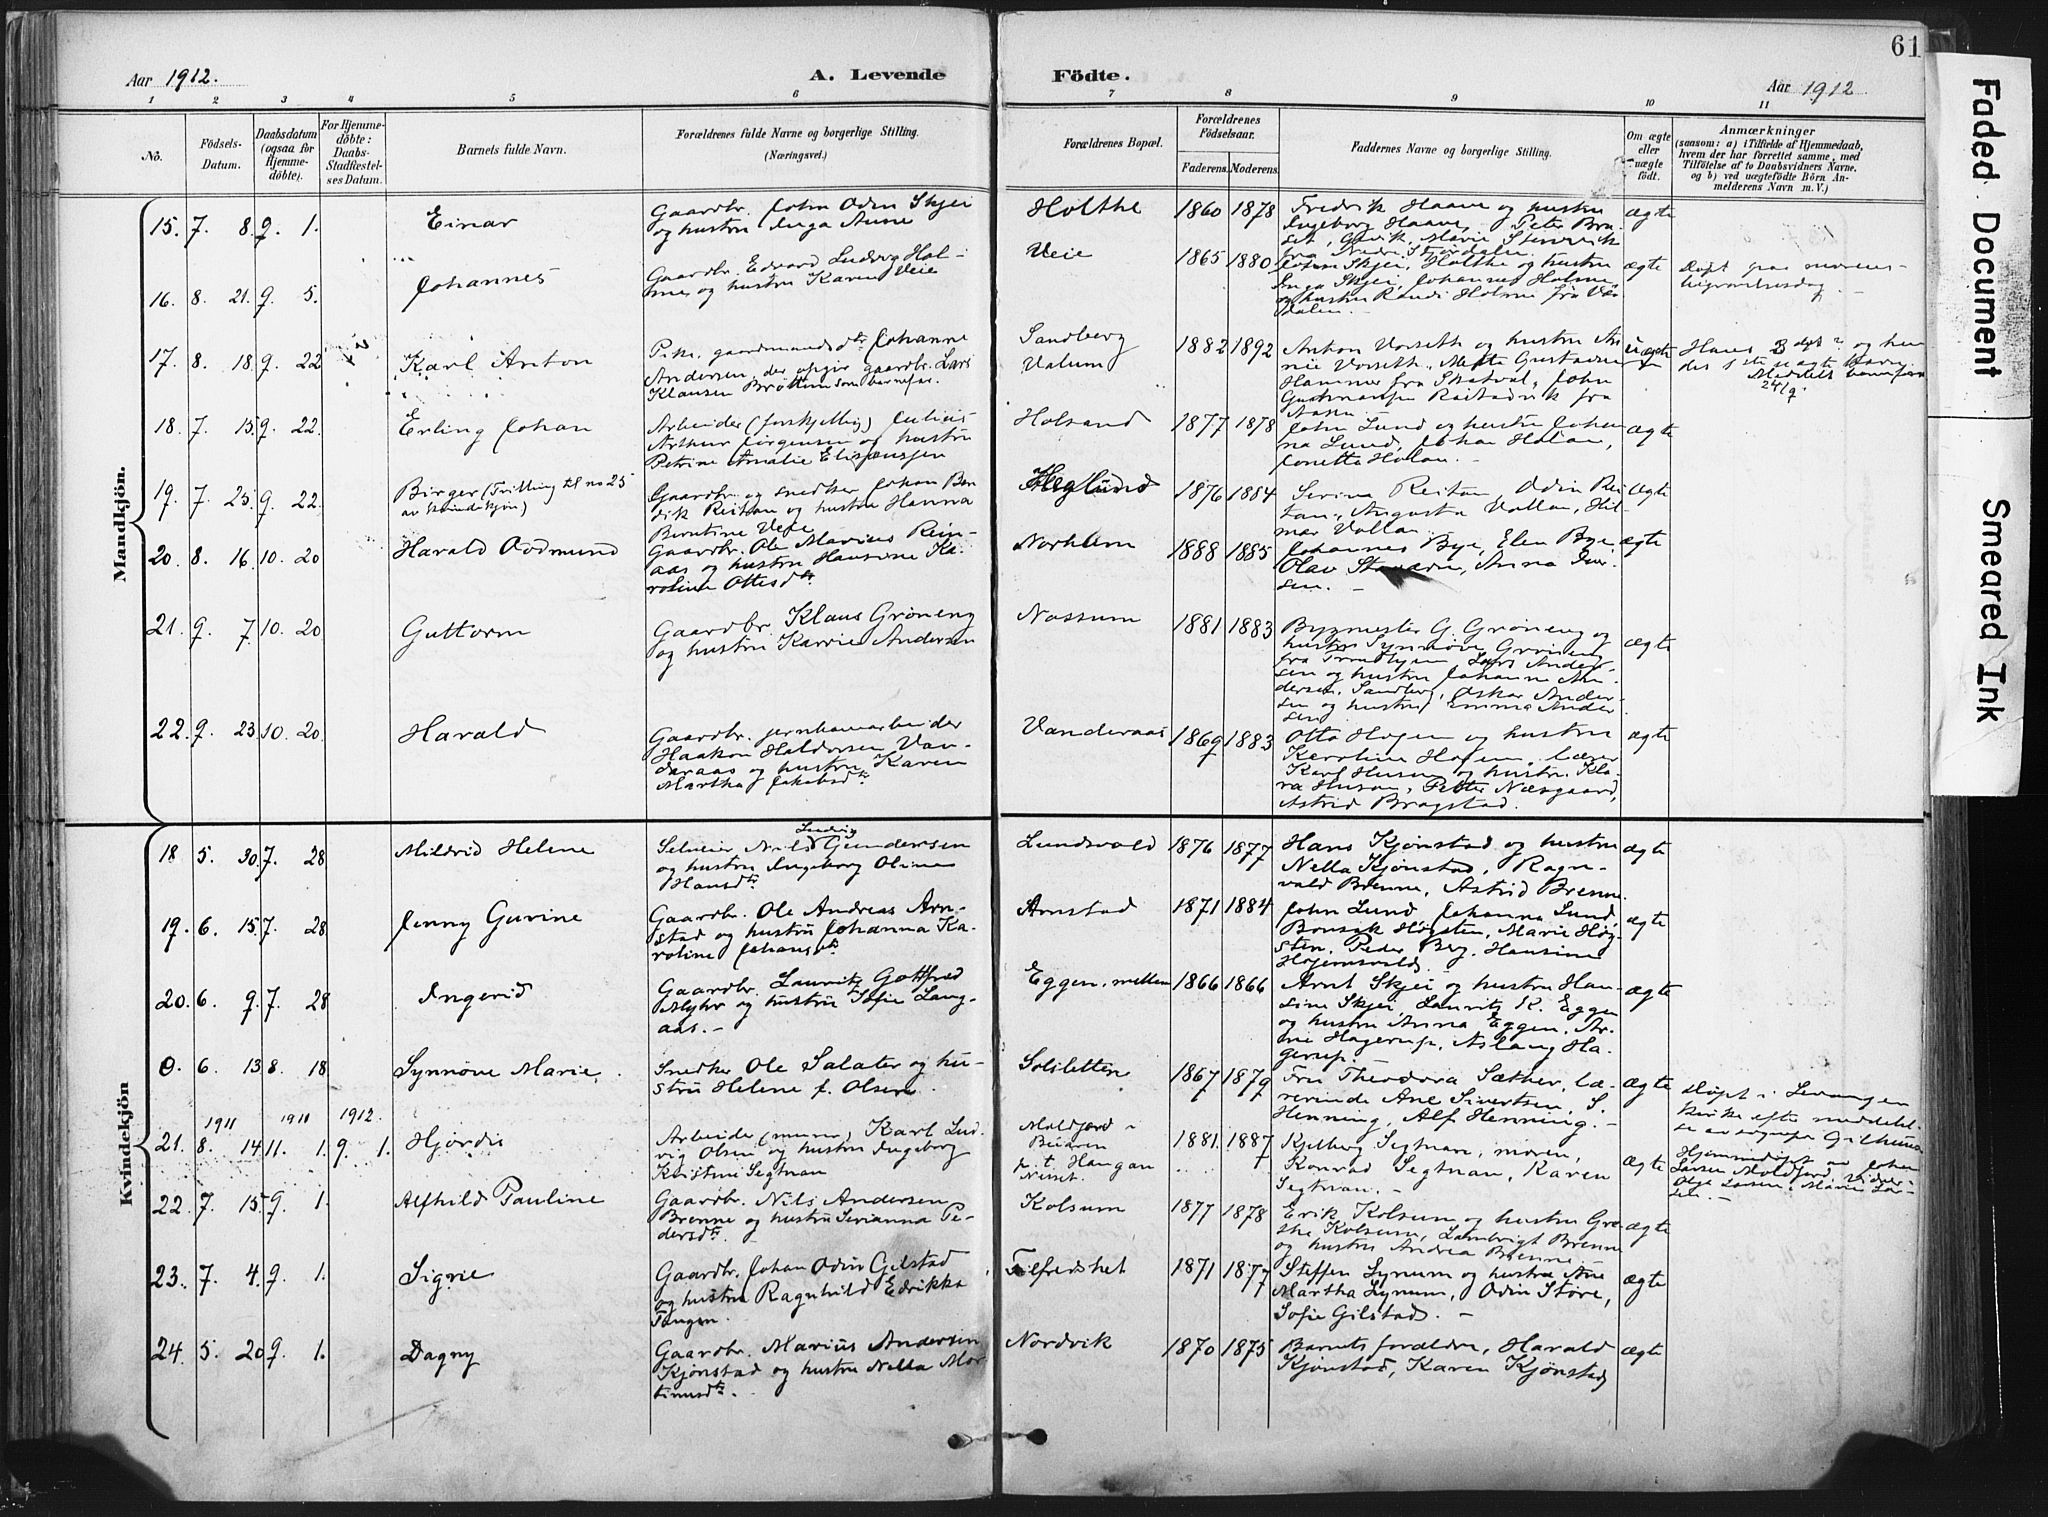 61
Aar 1912.
A. Levende
Födte.
Aar 1912
1 2 3 4 5 6 7 8 9 10 11
No.
Födsels-
Datum.
Daabsdatum
(ogsaa for
Hjemme-
döbte).
For Hjemme-
döbte:
Daabs-
Stadfæstel-
ses Datum.
Barnets fulde Navn.
Forældrenes fulde Navne og borgerlige Stilling.
(Næringsvei.)
Forældrenes Bopæl.
Forældrenes
Födselsaar.
Faderens. Moderens.
Faddernes Navne og borgerlige Stilling.
Om ægte
eller
uægte
födt.
Anmærkninger
(saasom: a) i Tilfælde af Hjemmedaab,
hvem der har forrettet samme, med
Tilföielse af to Daabsvidners Navne.
og b) ved uægtefödte Börn An-
melderens Navn m. V.)
Mandkjön.
15. 7. 8. 9. 1.
Einar
Gaardbr. John Odin Skjei
og hustru Inga Anne
Holthe
1860 1878
Fredrik Haave og hustru
Ingeborg Haave, Peter Bra-
set, Gjevik, Marie Stenvik
fra Nedre Stjørdalen.
ægte
16. 8. 21. 9. 5.
Johannes
Gaardbr. Edvard Ludvig Hol-
me, og hustru Karen Veie
Veie
1865 1880
John Skjei, Holthe og hustru
Inga Skjei, Johannes Holme
og hustru Randi Holme fra Vær-
dalen.
ægte
Døpt paa morens
begravelsesdag.
17. 8. 18. 9. 22
Karl Anton
Pike, gaardmandsdtr Johanne
Andersen, der opgir gaardbr. Lars
Klausen Brøttem som barnefar.
Sandberg
Valum
1882 1892
Anton Vorseth og hustru An-
nie Vorseth, Mette Gustavsen
Hammer fra Skatval, John
Gustavsen Reitadvik fra
Aasen
uægte
Hans 3dje og hen
des 1ste uegte barn
Meddelt barnefaren
24/9.
18. 7. 15. 9. 22.
Erling Johan
Arbeider (forskjellig) Julius
Arthur Jørgensen og hustru
Petrine Amalie Elisæussen
Holsand
1877 1878
John Lund og hustru Johan
na Lund, Johan Holan,
Jonetta Holan.
ægte
19. 7. 25. 9. 22.
Birger (Tvilling til no 25
av kvindekjøn)
Gaardbr. og snedker Johan Ben
dik Reitan og hustru Hanna
Berntine Veie
Høglund
1876 1884
Serina Reitan, Odin Rei
tan, Augusta Vollan, Hil-
mar Vollan.
ægte
20. 8. 16. 10. 20
Harald Oddmund
Gaardbr. Ole Marius Rein-
aas og hustru Hansine Ka-
roline Ottesdtr
Norhem
1888 1885
Johannes Bye, Elen Bye
Olav Stavern, Anna Iver-
sen.
ægte
21. 9. 7. 10. 20
Guttorm
Gaardbr. Klaus Grøneng
og hustru Karrie Andersen
Nossum
1881 1883
Bygmester G. Grøneng og
hustru Synnøve Grøneng
fra Trondhjem, Lars Ander-
sen og hustru Johanne An-
dersen, Sandberg, Oskar Ander-
sen og hustru Emma Ander
sen
ægte
22. 9. 23. 10. 20.
Harald
Gaardbr. jernbanearbeider
Haakon Haldorsen Van-
deraas og hustru Karen
Martha Jakobsdtr
Vanderaas
1869 1883
Otto Hojem og hustru
Karoline Hojem, lærer
Karl Husan og hustru Kla
ra Husan, Petter Næsgaard,
Astrid Bragstad.
ægte
Kvindekjön
18 5. 30. 7. 28
Mildrid Helene
Selveier Nils Ludvig Gundersen
og hustru Ingeborg Oline
Hansdtr
Lundsvald
1876 1877
Hans Kjønstad og hustru
Nella Kjønstad, Ragn-
vald Brenne, Astrid Brenne.
ægte
19. 6. 15. 7. 28
Jenny Gurine
Gaardbr. Ole Andreas Arn-
stad og hustru Johanna Ka-
roline Johansdtr
Arnstad
1871 1884
John Lund, Johanna Lund,
Bonsak Høgsten, Marie Høg-
sten, Peder Berg, Hansine
Hojemsvald.
ægte
20. 6. 9. 7. 28
Ingerid
Gaardbr. Lauritz Gottfred
Myhr og hustru Sofie Lang-
aas.
Eggen, mellem
1866 1866
Arnt Skjei og hustru Han-
sine Skjei, Lauritz K. Eggen
og hustru Anna Eggen, Ar-
ne Hagerup, Aslaug Ha-
gerup.
ægte
0. 6. 13. 8. 18
Synnøve Marie.
Snedker Ole Salater og hu-
stru Helene f. Olsen
Solsletten
1867 1879
Fru Theodora Sæther, læ-
rerinde Ane Sivertsen, S.
Henning, Alf Henning.
ægte
Døpt i Levanger
kirke efter meddelel-
se av sogneprst Gilhuus
1911 1911 1912.
21. 8. 14. 11. 1. 9. 1.
Hjørdis
Arbeider (murer) Karl Lud
vig Olsen og hustru Ingeborg
Kristine Segtnan
Moldjord i
Beiaren
n. t. Haugan
Nesset.
1881. 1887
Kjelberg Segtnan, moren,
Konrad Segtnan, Karen
Segtnan.
ægte
Hjemmedøpt av Johan
Larsen Moldjord, Vidner
Olge Larsen, Marie Lar-
sen.
22. 7. 15. 9. 1.
Alfhild Pauline
Gaardbr. Nils Andersen
Brenne og hustru Serianna Pe-
dersdtr.
Kolsum
1877 1878
Erik Kolsum og hustru Gre-
the Kolsum, Lambrigt Brenne
og hustru Andrea Brenne.
ægte
23. 7. 4. 9. 1.
Signe
Gaardbr. Johan Odin Gilstad
og hustru Ragnhild Edrikka
Tangen.
Tilfredshet
1871 1877
Steffen Lynum og hustru Ane
Martha Lynum, Odin Støre,
Sofie Gilstad.
ægte
24. 5. 20. 9. 1.
Dagny
Gaardbr. Marius Andersen
Kjønstad og hustru Nella Mar
tinusdtr.
Nordvik
1870 1875
Barnets forældre, Harald
Kjønstad, Karen Kjønstad
ægte
Faded Document
Smeared Ink